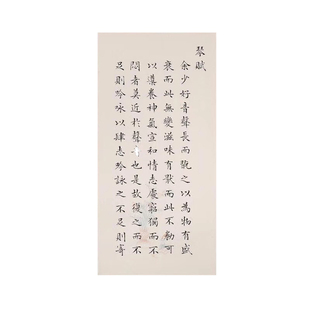 琴賦
余少好音聲長而翫之以為物有盛
衰而此無變滋味有猒而此不勌可
以導養神氣宣和情志處窮獨而不
悶者莫近於聲也是故復之而不
足則吟詠以肆志吟詠之不足則寄